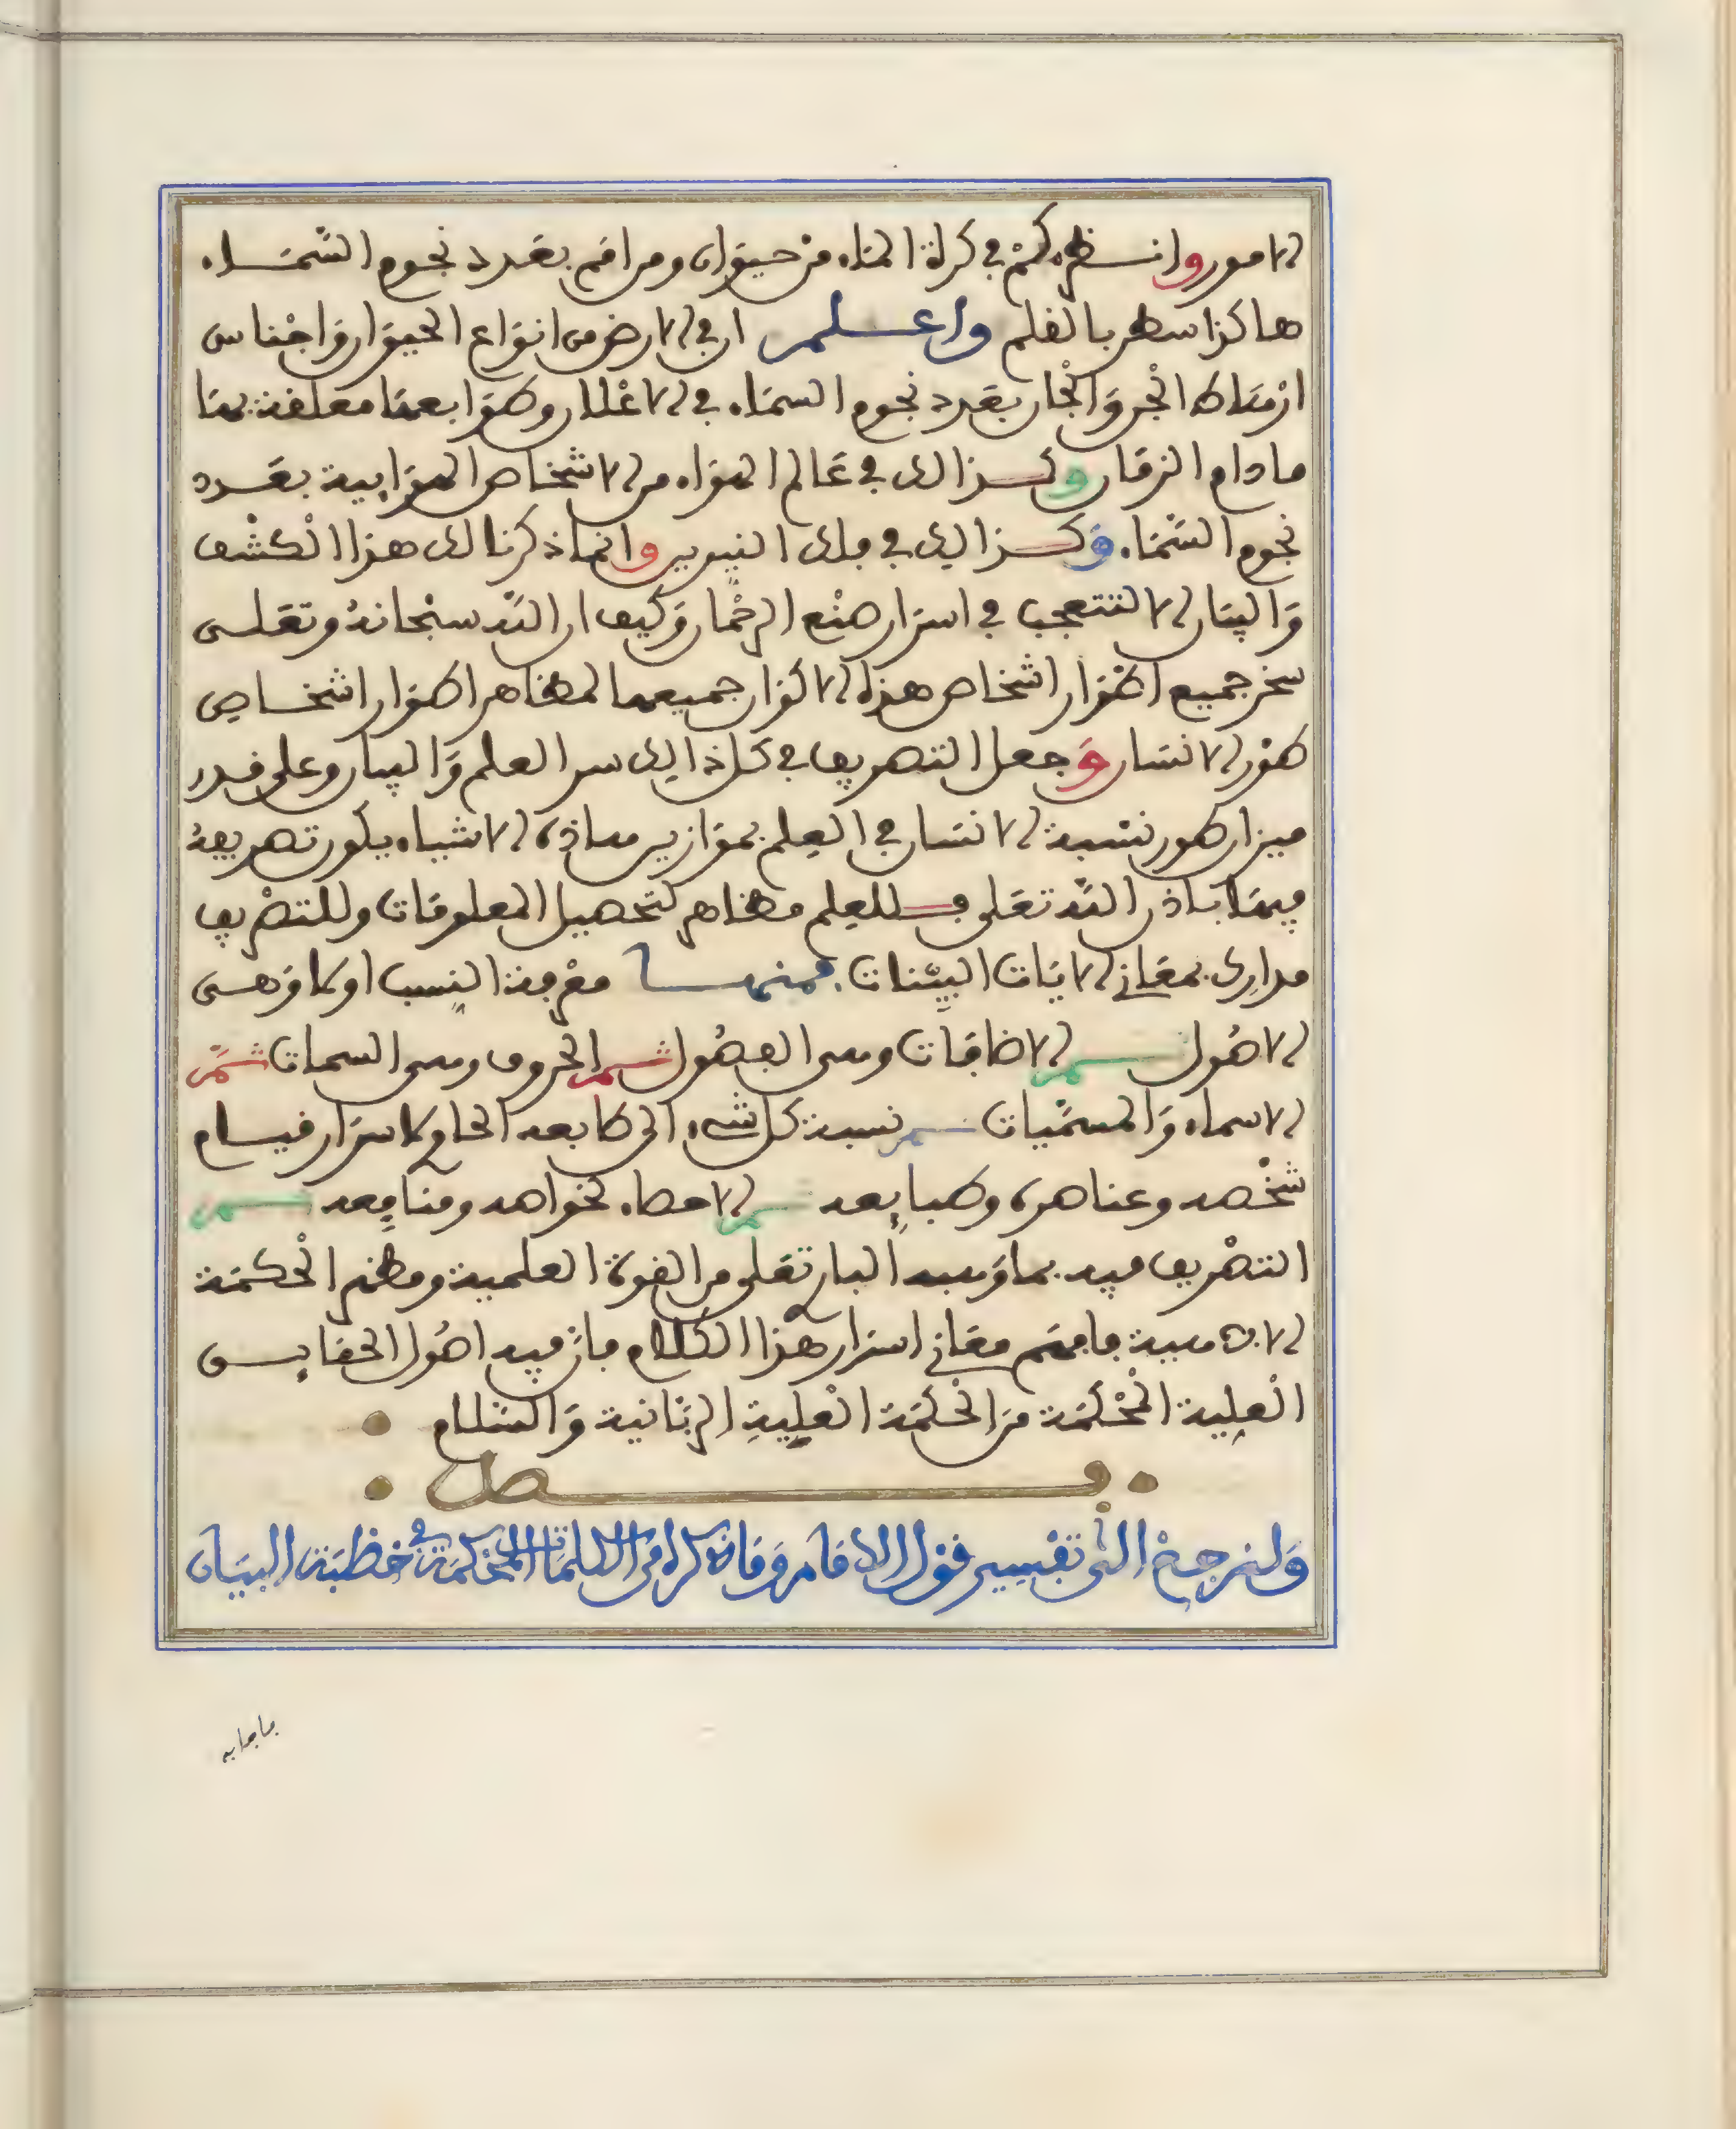 الامور وانظر كم في كرة الماء من حيوان ومن امم بعدد نجوم السماء
هاكذا سطر بالقلم واعلم ان في الارض من انواع الحيوان واجناس
ارهاط الجن والجان بعدد نجوم السماء في الاغلان وطوابعها معلقة بها
ما دام الزمان وكذالك في عالم الهواء من الاشخاص الهوايية بعدد
نجوم السماء وكذالك في فلك النيرين وانما ذكرنا لك هذا الكشف
والبيان الا لتتعجب في اسرار صنع الرحمان وكيف ان الله سبحانه وتعلى
سخر جميع اطوار اشخاص هذه الاكوان جميعها لمظاهر اطوار اشخاص
طور الانسان وجعل التصريف في كل ذالك سر العلم والبيان وعلى قدر
ميزان طور نسبة الانسان في العلم بموازين هاذه الاشياء يكون تصريفه
فيها باذن الله تعلى فللعلم مظاهر لتحصيل المعلومات وللتصريف
مدارك بمعاني الايات البينات فمنها معرفة النسب اولا وهي
الاصول ثم الاضافات وهى الفصول ثم الحروف وهى السمات ثم
الاسماء والمسميات ثم نسبة كل شيء الى طابعه الحاو لاسرار قيام
شخصه وعناصره وطبايعه ثم الاحطاء بخواصه ومنافعه ثم
التصريف فيه بما وهبه البار تعلى من القوة العلمية ومظهر الحكمة
الالاهية فافهم معاني اسرار هذا الكلام فان فيه اصول الحقايق
العلية المحكمة من الحكمة العلية الربانية والسلام
فصل
ولنرجع الى تفسير قول الامام وما ذكره من الكلمات المحكمة في خطبة البيان